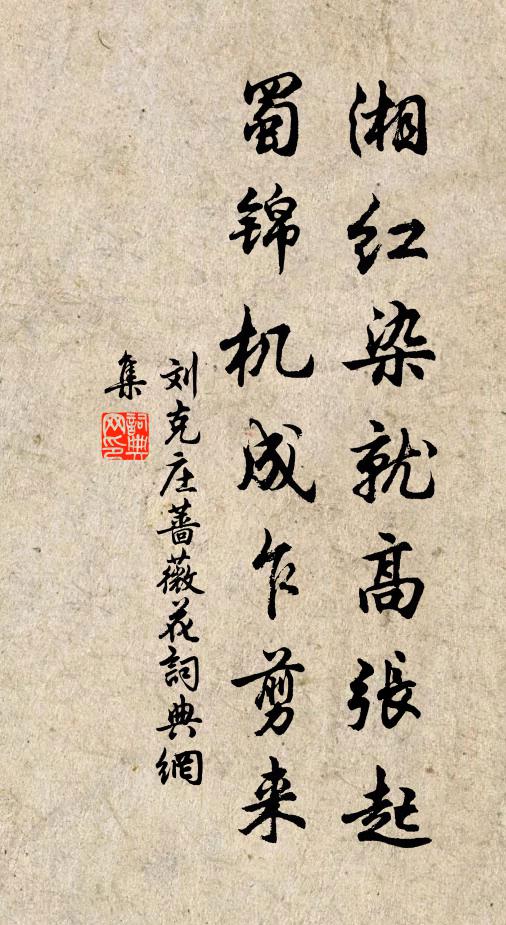 湘红染就高張起
蜀锦机成乍剪来
刘克庄蔷薇花詞典網
集
詞典网印